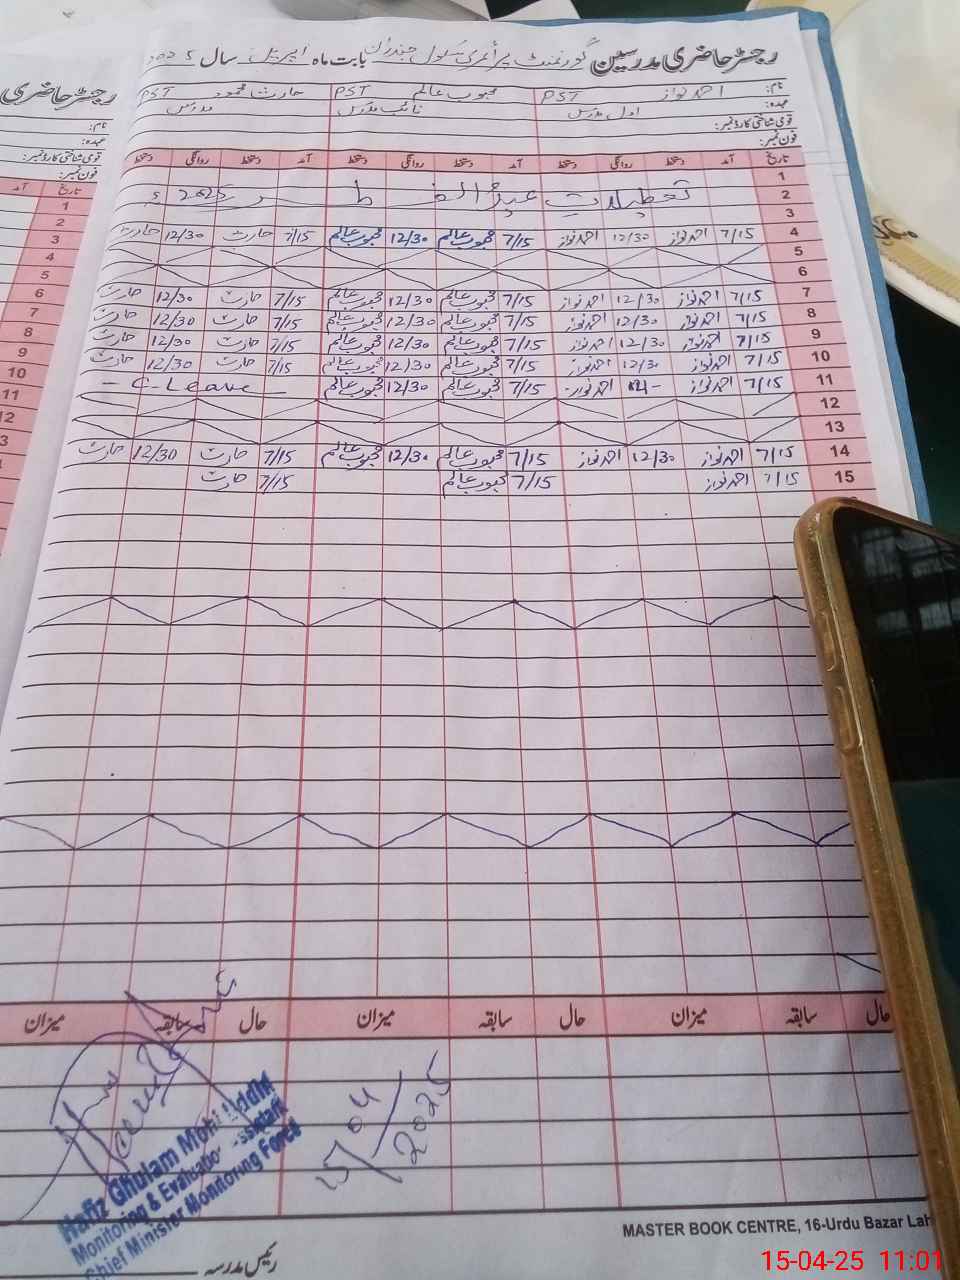 رجسٹر حاضری مدرسین گورنمنٹ پرائمری سکول بابت ماہ اپریل سال 2025
نام: احمد نواز PST محبوب عالم PST حارث محمود PST
عہدہ: اول مدرس نائب مدرس مدرس
قومی شناختی کارڈ نمبر:
فون نمبر:
تاریخ آمد دستخط روانگی دستخط آمد دستخط روانگی دستخط آمد دستخط روانگی دستخط
1
2 تعطیلات عید الفطر 2025ء
3
4 7/15 احمد نواز 12/30 احمد نواز 7/15 محبوب عالم 12/30 محبوب عالم 7/15 حارث 12/30 حارث
5
6
7 7/15 احمد نواز 12/30 احمد نواز 7/15 محبوب عالم 12/30 محبوب عالم 7/15 حارث 12/30 حارث
8 7/15 احمد نواز 12/30 احمد نواز 7/15 محبوب عالم 12/30 محبوب عالم 7/15 حارث 12/30 حارث
9 7/15 احمد نواز 12/30 احمد نواز 7/15 محبوب عالم 12/30 محبوب عالم 7/15 حارث 12/30 حارث
10 7/15 احمد نواز 12/30 احمد نواز 7/15 محبوب عالم 12/30 محبوب عالم 7/15 حارث 12/30 حارث
11 7/15 احمد نواز احمد نواز 7/15 محبوب عالم 12/30 محبوب عالم - C-Leave
12
13
14 7/15 احمد نواز 12/30 احمد نواز 7/15 محبوب عالم 12/30 محبوب عالم 7/15 حارث 12/30 حارث
15 7/15 احمد نواز 7/15 محبوب عالم 7/15 حارث
حال سابقہ میزان حال سابقہ میزان حال سابقہ میزان
15/04/2025
Hafiz Ghulam Mohi Uddin
Monitoring & Evaluation Assistant
Chief Minister Monitoring Force
رئیس مدرسہ
MASTER BOOK CENTRE, 16-Urdu Bazar Lah
15-04-25 11:01
رجسٹر حاضری
نام:
عہدہ:
قومی شناختی کارڈ نمبر:
فون نمبر:
تاریخ آمد
1
2
3
4
5
6
7
8
9
10
11
12